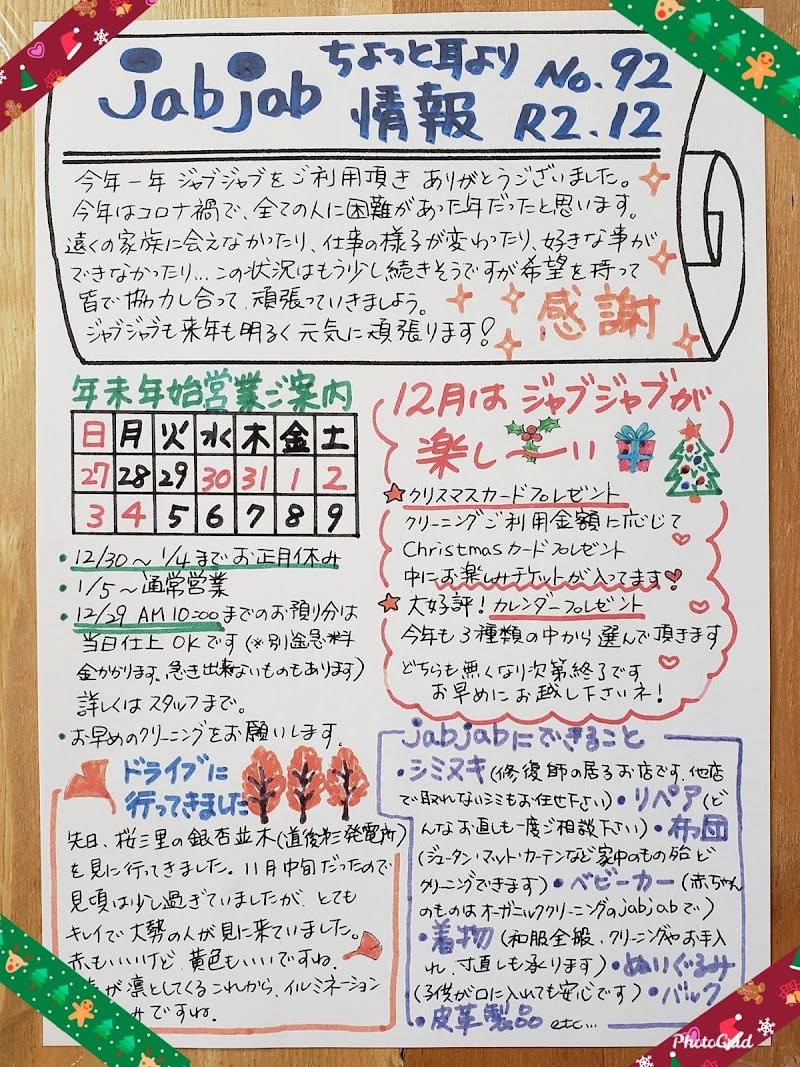 jabjab ちょっと耳より情報 No.92 R2.12
今年一年 ジャブジャブをご利用頂き ありがとうございました。
今年はコロナ禍で、全ての人に困難があった年だったと思います。
遠くの家族に会えなかったり、仕事の様子が変わったり、好きな事が
できなかったり…この状況はもう少し続きそうですが希望を持って
皆で協力し合って、頑張っていきましょう。
ジャブジャブも来年も明るく元気に頑張ります!
感謝
年末年始営業ご案内
日 月 火 水 木 金 土
27 28 29 30 31 1 2
3 4 5 6 7 8 9
・12/30～1/4までお正月休み
・1/5～通常営業
・12/29 AM10:00までのお預り分は
当日仕上OKです(※別途急料
金かかります。急き出来ないものもあります)
詳しくはスタッフまで。
・お早めのクリーニングをお願いします。
12月はジャブジャブが
楽し〜い
クリスマスカードプレゼント
クリーニングご利用金額に応じて
Christmasカードプレゼント
中にお楽しみチケットが入ってます
大好評！カレンダープレゼント
今年も3種類の中から選んで頂きます
どちらも無くなり次第終了です
お早めにお越し下さいネ！
ドライブに
行ってきました
先日、桜三里の銀杏並木(道後第三発電所)
を見に行ってきました。11月中旬だったので
見頃は少し過ぎていましたが、とても
キレイで大勢の人が見に来ていました。
赤もいいけど、黄色もいいですね。
が凛としてくるこれから、イルミネーション
みですね。
jabjabにできること
・シミヌキ(修復師の居るお店です。他店
で取れないシミもお任せ下さい)・リペア(ど
んなお直しも一度ご相談下さい)・布団
(ジュータン・マット・カーテンなど家中のもの殆ど
クリーニングできます)・ベビーカー(赤ちゃん
のものはオーガニッククリーニングのjabjabで)
・着物(和服全般、クリーニングやお手入
れ、寸直しも承ります)・ぬいぐるみ
(子供が口に入れても安心です)・バッグ
・皮革製品 etc…
PhotoGrid